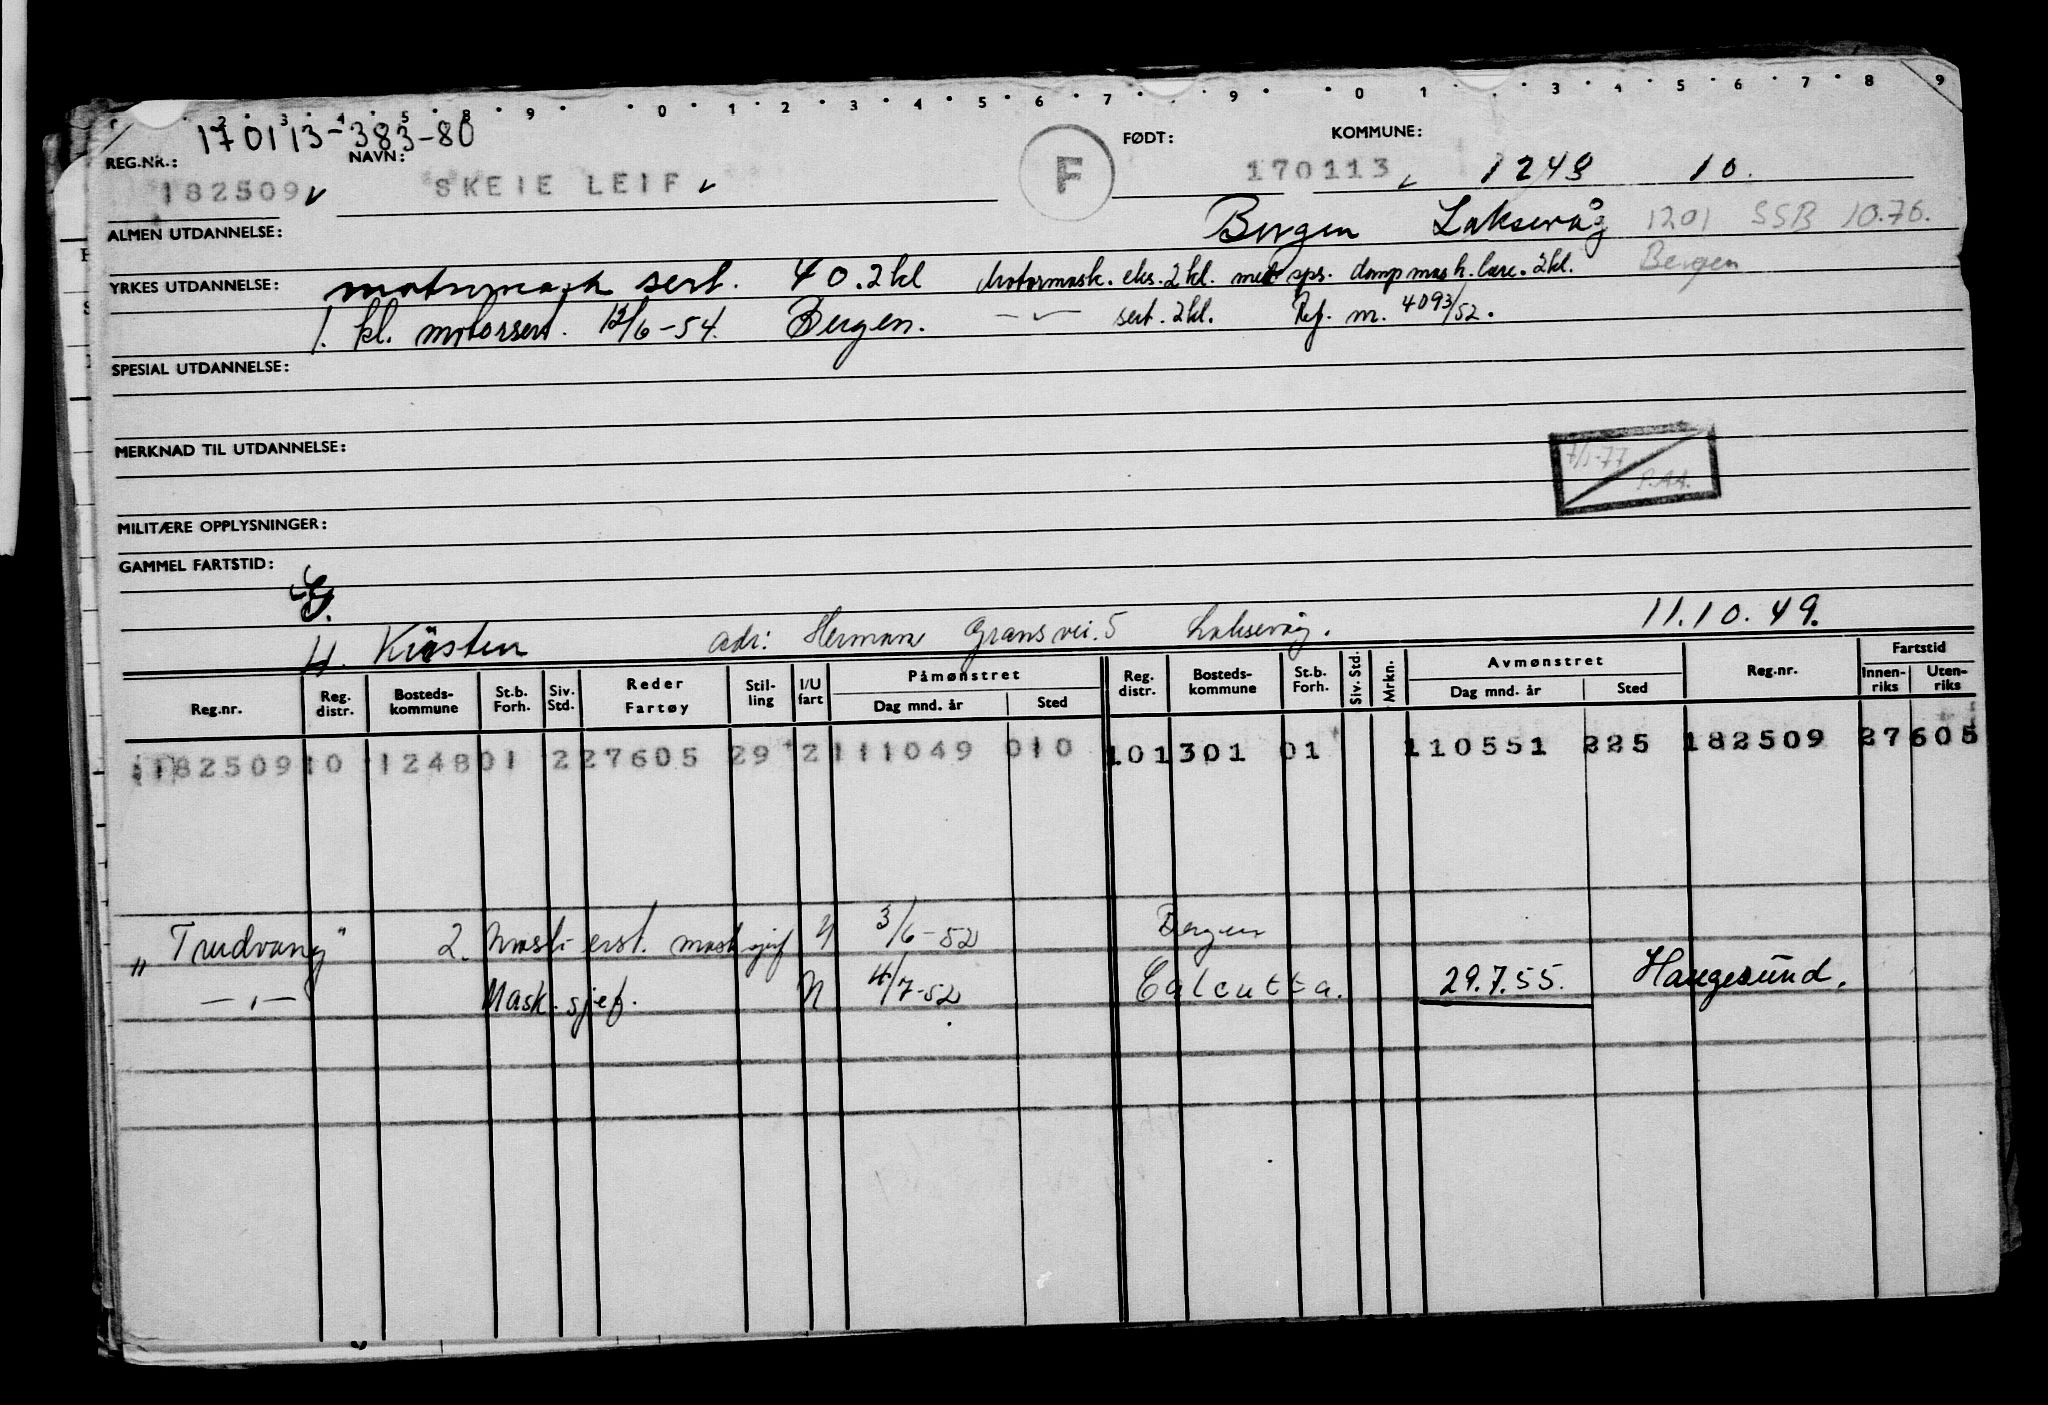 2 3 4 5 8 9 0 1 2 3 4 5 6 7 9 0 1 3 4 5 6 7 8 9
170113-383-80
REG.NR.: NAVN: FØDT: KOMMUNE:
182509 SKEIE LEIF F 170113 1248 10.
ALMEN UTDANNELSE: Bergen Laksevåg 1201 SSB 10.76.
YRKES UTDANNELSE: motormask sert. 40.2kl Motormask. eks. 2kl. med sps. dampmask. lære. 2kl. Bergen
1. kl. motorsert. 12/6-54. Bergen. sert. 2kl. Ref. nr. 4093/52.
SPESIAL UTDANNELSE:
MERKNAD TIL UTDANNELSE:
7/1-77
P.AA.
MILITÆRE OPPLYSNINGER:
GAMMEL FARTSTID:
G.
H. Kirsten adr: Herman Grans vei. 5 Laksevåg. 11.10.49.
Reg.nr. Reg. distr. Bosteds- kommune St.b. Forh. Siv. Std. Reder Fartøy Stil- ling I/U fart Påmønstret Dag mnd. år Sted Reg. distr. Bosteds- kommune St.b. Forh. Siv. Std. Mrkn. Avmønstret Dag mnd. år Sted Reg.nr. Fartstid Innen- riks Uten- riks
182509 10 1248 01 2 27605 29 2 111049 010 10 1301 01 110551 225 182509 27605
„Trudvang" 2. Mask erst. mask sjef U 3/6-52 Bergen
—„— Mask. sjef. U 4/7-52 Calcutta. 29.7.55. Haugesund.